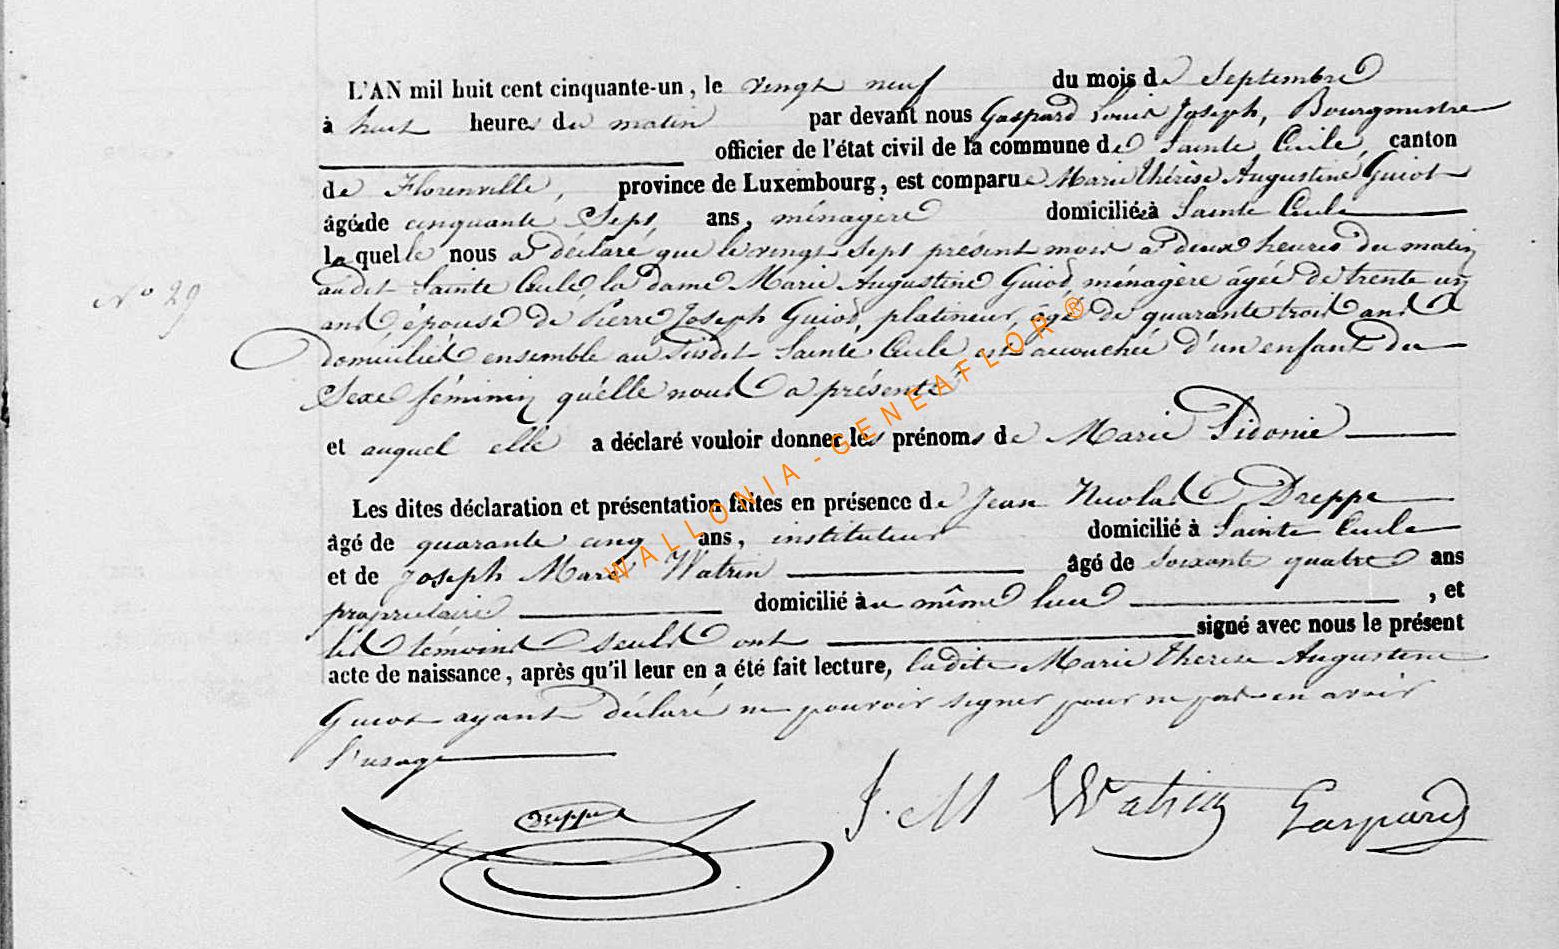 L'AN mil huit cent cinquante-un, le vingt neuf du mois de Septembre
à huit heures du matin par devant nous Gaspard Louis Joseph, Bourgmestre
officier de l'état civil de la commune de Sainte Cécile, canton
de Florenville, province de Luxembourg, est comparue Marie Thérèse Augustine Guiot
âgée de cinquante Sept ans, ménagère domiciliée à Sainte Cécile
laquelle nous a déclaré que le vingt Sept présent mois à deux heures du matin
N° 29
audit Sainte Cécile la dame Marie Augustine Guiot, ménagère âgée de trente un
ans, épouse de Pierre Joseph Guiot, platineur, âgé de quarante trois ans
domiciliés ensemble au Susdit Sainte Cécile, est accouchée d'un enfant du
Sexe féminin qu'elle nous a présenté
et auquel elle a déclaré vouloir donner les prénoms de Marie Sidonie
Les dites déclaration et présentation faites en présence de Jean Nicolas Dreppe
âgé de quarante cinq ans, instituteur domicilié à Sainte Cécile
et de Joseph Marc Watrin âgé de soixante quatre ans
propriétaire domicilié au même lieu, et
les témoins seuls ont signé avec nous le présent
acte de naissance, après qu'il leur en a été fait lecture, ladite Marie Thérèse Augustine
Guiot ayant déclaré ne pouvoir signer pour ne pas en avoir
l'usage
Dreppe J. M Watrin Gaspard
WALLONIA - GENEAFLOR ®